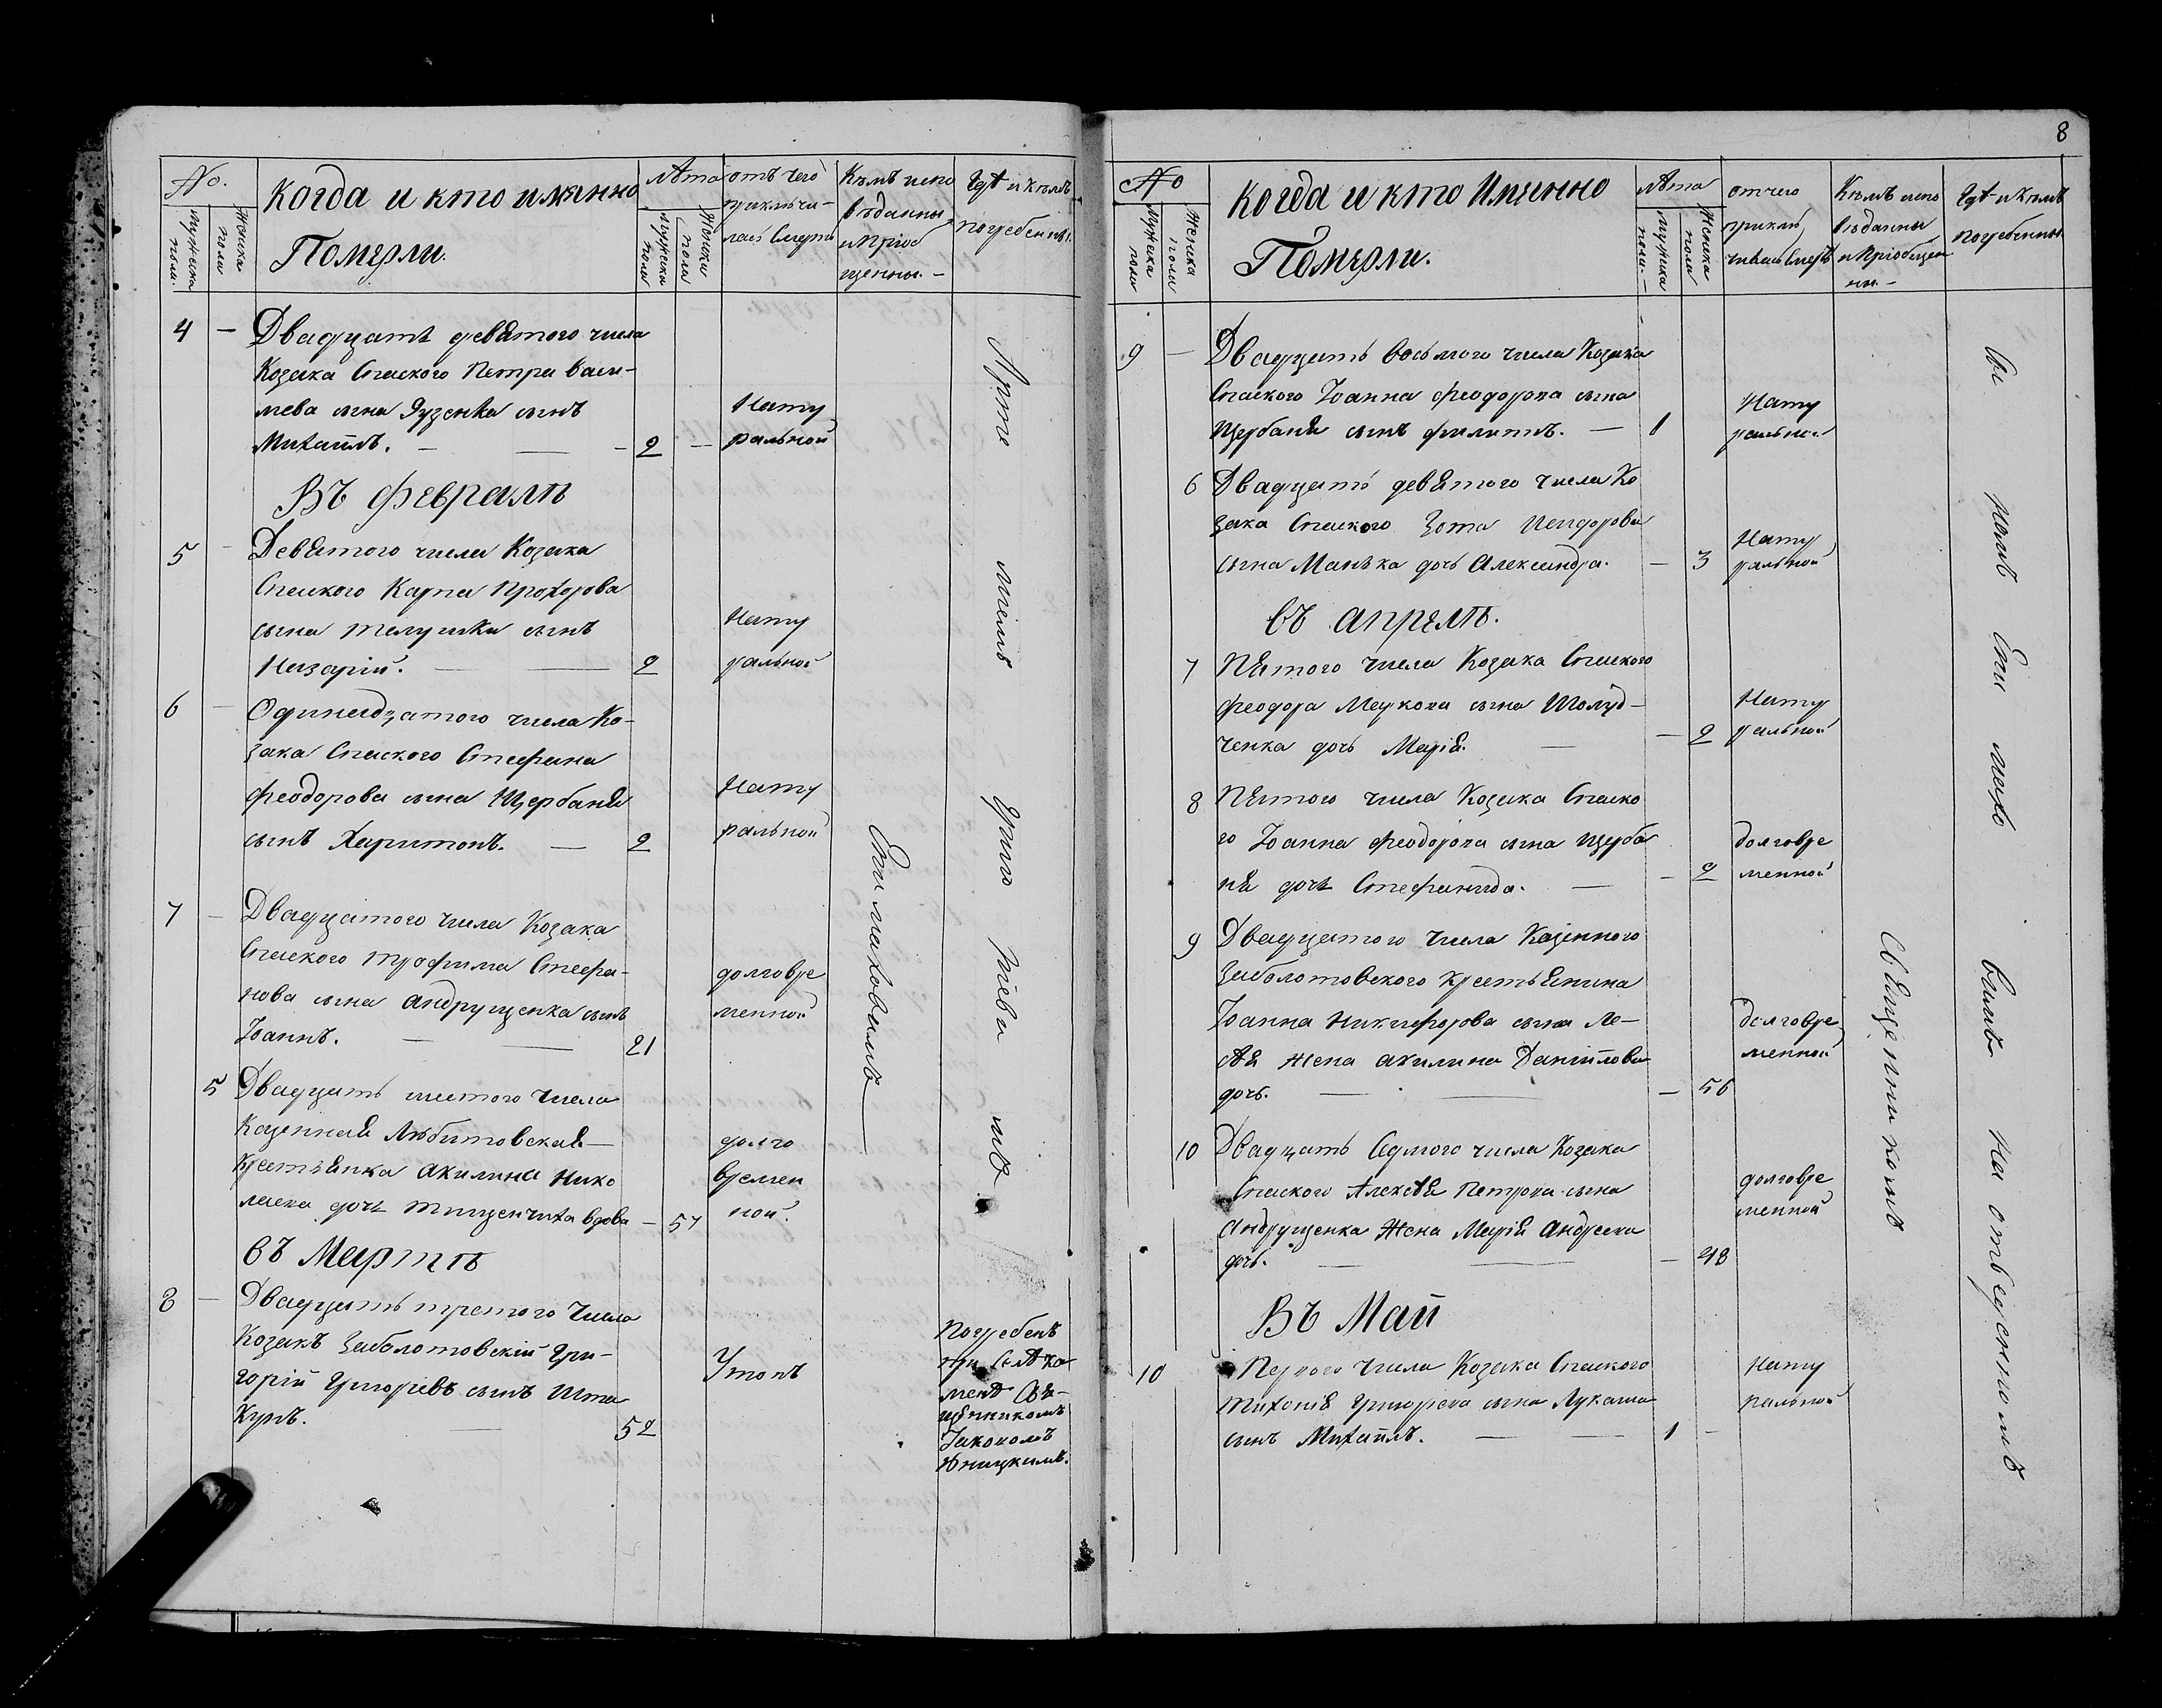 No.
Мужеска полу.
Женска полу
Когда и кто именно
Померли.
Лѣта
Мужеска полу
Женски полу
отъ чего
приключи-
лась Смерть
Кѣмъ испо
вѣданны
и Пріоб
щенны. -
Гдѣ и кѣмъ
погребенны.
4 - Двадцать девятого числа
Козака Спаского Петра Васи-
лева сына Яузенка сынъ
Михаилъ. - - - 2 -
Нату
ральной
Въ Февралѣ
5 - Девятого числа Козака
Спаского Карпа Прохорова
сына Телушки сынъ
Назарій. - - 2
Нату
ральной
6 - Одинадцатого числа Ко-
зака Спаского Стефана
Феодорова сына Щербаня
сынъ Харитонъ. - 2
Нату
ральной
7 - Двадцатого числа Козака
Спаского Трофима Стефа-
нова сына Андрущенка сынъ
Іоаннъ. - - 21
долговре
менной
5 Двадцать шестого числа
Казенная Любитовская
Крестьянка Акилина Нико
лаева дочь Тищенчиха вдова - 57
долго
времен
ной.
Въ Мартѣ
8 - Двадцать третого Числа
Козакъ Заболотовскій Гри-
горій Григоріевъ сынъ Шта
Куръ. - 52
Утопъ
Погребенъ
при
Священникомъ
Іаковомъ
8
No
Мужеска полу
Женска полу
Когда и кто Именно
Померли.
Лѣта
Мужеска полу. -
Женска полу
отчего
приклю
чилась Смерть
Кѣмъ испо
вѣданны
и Пріобщен
ны. -
Гдѣ и кѣмъ
погребенны.
9 - Двадцать восьмого числа Козака
Спаского Іоанна Феодорова сына
Щербаня сынъ Филиппъ. - 1
Нату
ральной
6 Двадцать девятого числа Ко
зака Спаского Зота Исидорова
сына Манька дочь Александра. - 3
Нату
ральной
Въ апрелѣ.
7 Пятого числа Козака Спаского
Феодора Маркова сына Шолуд-
ченка дочь Марія. - - 2
Нату
ральной
8 Пятого числа Козака Спаско
го Іоанна Феодорова сына Щерба
ня дочь Стефанида. - - 2
долговре
менной
9 Двадцатого числа Казенного
Заболотовского Крестьянина
Іоанна Никифорова сына Ле-
Жена Акилина Даніилова
дочь. - - - 56
долговре
менной
10 Двадцать Седмого числа Козака
Спаского Алексѣя Петрова сына
Андрущенка Жена Марія Андреева
дочь. - - - 48
долговре
менной
Въ Май
10 Первого числа Козака Спаского
Тихонія Григорева сына Лукаша
сынъ Михаилъ. - - 1 -
Нату
ральной
Священникомъ
На отведенномъ